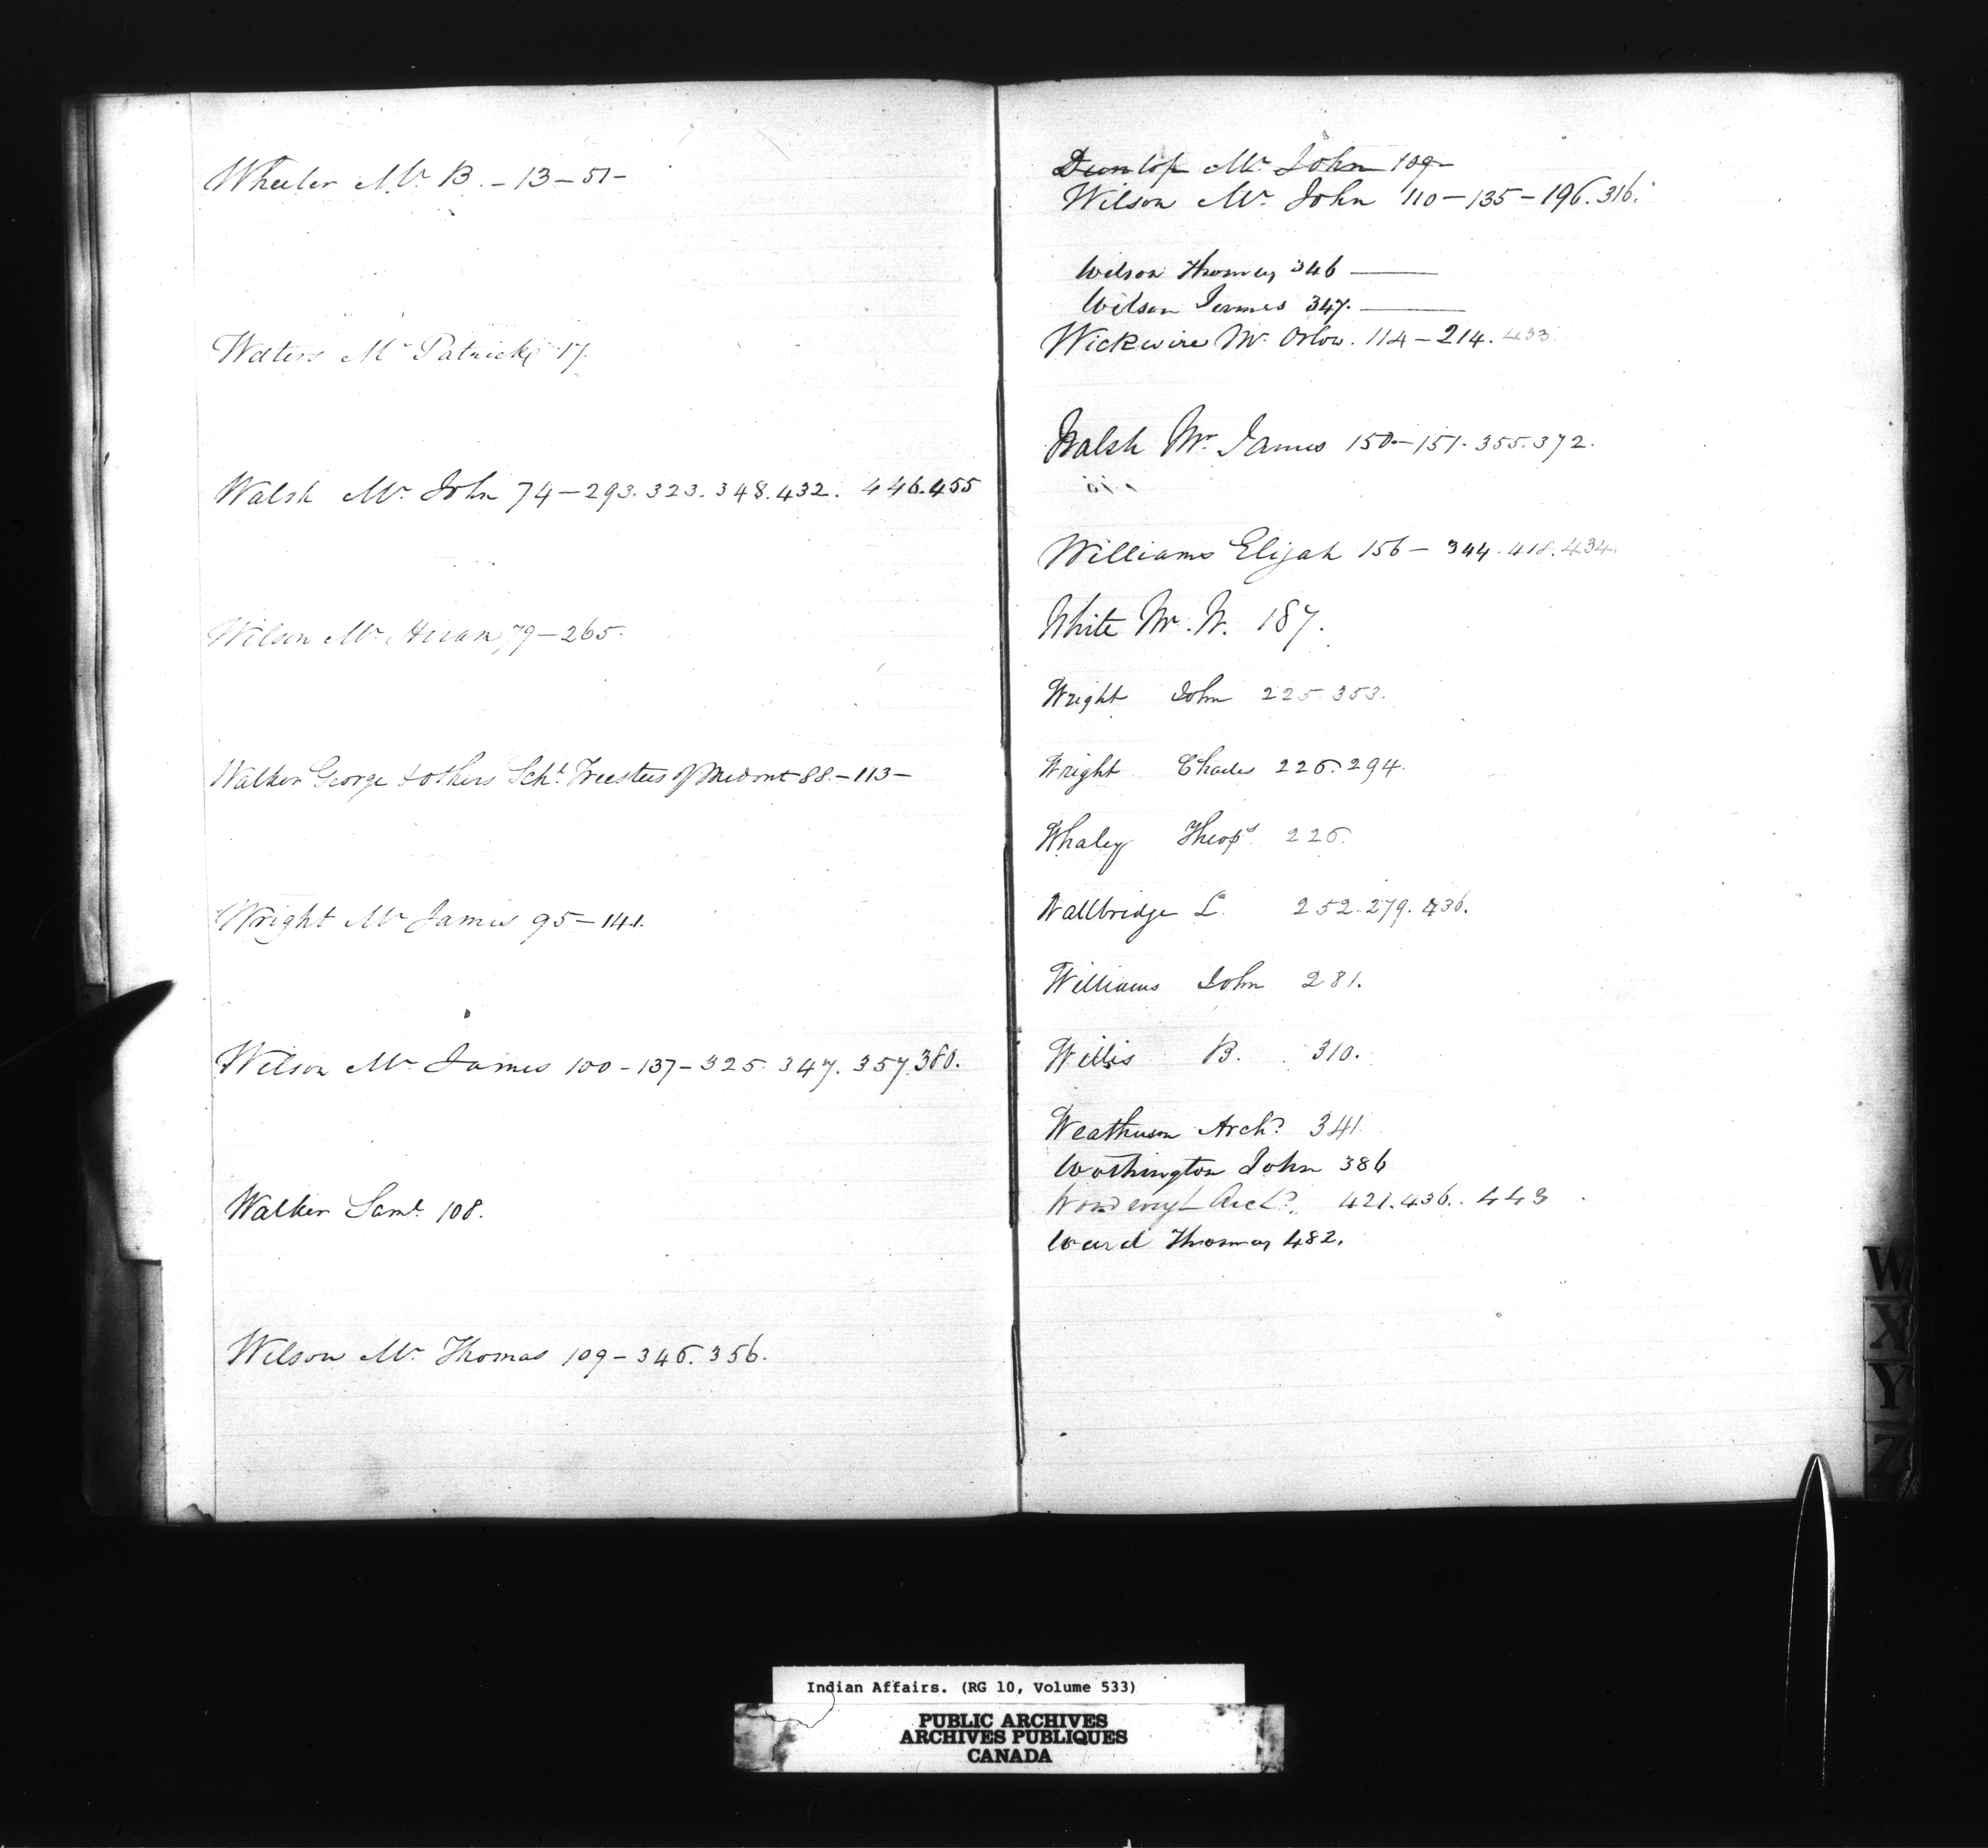 Wheeler Mr. B. - 13 - 51 -
Waters Mr Patrick 17.
Walsh Mr. John 74 - 293. 323. 348. 432. 446. 455
Wilson Mr. Hiram 79 - 265.
Walker George & others Schl. Trustees of Medonte 88. - 113 -
Wright Mr James 95 - 141.
Wilson Mr. James 100 - 137 - 325. 347. 357. 380.
Walker Saml. 108.
Wilson Mr. Thomas 109 - 346. 356.
Dunlop Mr. John 109 -
Wilson Mr. John 110 - 135 - 196. 316.
Wilson Thomas 346
Wilson James 347.
Wickwire Mr. Orlow. 114 - 214. 433.
Walsh Mr. James 150 - 151. 355. 372.
Williams Elijah 156 - 344. 418. 434.
White Mr. W. 187.
Wright John 225. 353.
Wright Charles 226. 294.
Whaley Theops. 226.
Wallbridge L. 252. 279. 436.
Williams John 281.
Willis B. 310.
Archd. 341.
Washington John 386
421. 436. 443
Ward Thomas 482.
W
X
Y
Z
Indian Affairs. (RG 10, Volume 533)
PUBLIC ARCHIVES
ARCHIVES PUBLIQUES
CANADA